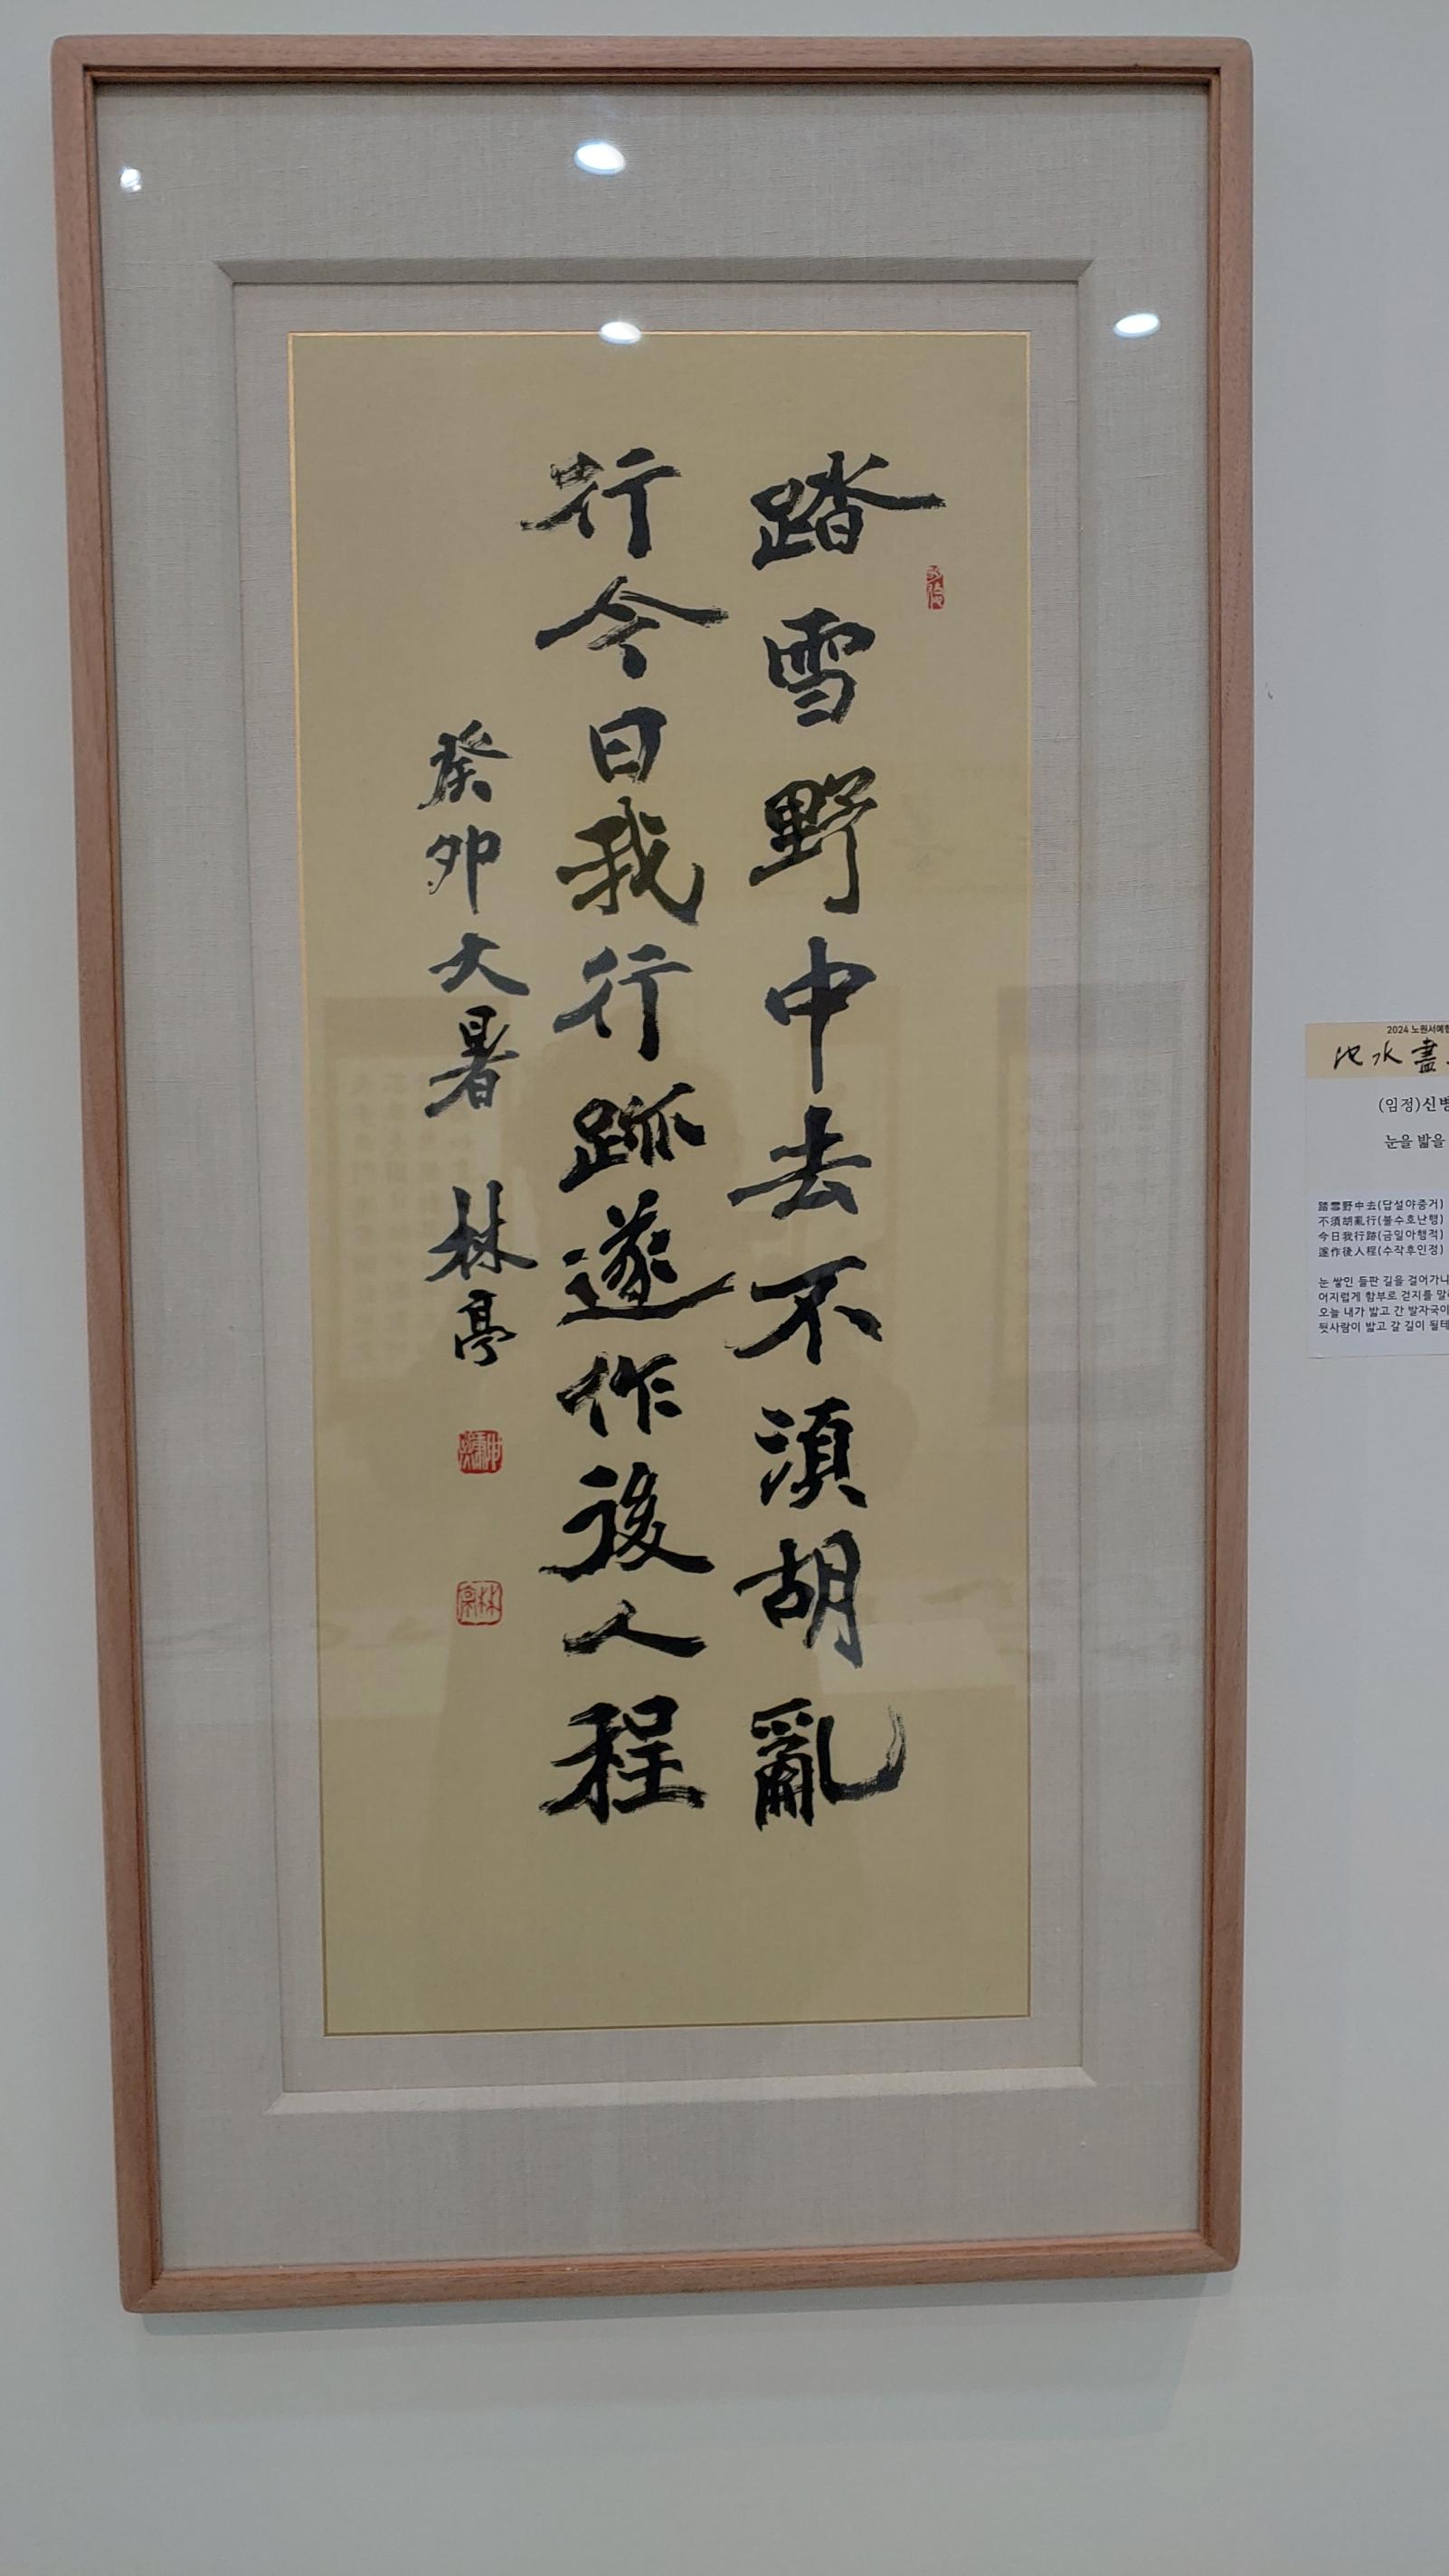 踏雪野中去不須胡亂
行今日我行跡遂作後人程
癸卯大暑 林亭
2024 노원서예협
池水盡
(임정)신병
눈을 밟을
踏雪野中去(답설야중거)
不須胡亂行(불수호난행)
今日我行跡(금일아행적)
遂作後人程(수작후인정)
눈 쌓인 들판 길을 걸어가니
어지럽게 함부로 걷지를 말
오늘 내가 밟고 간 발자국이
뒷사람이 밟고 갈 길이 될테